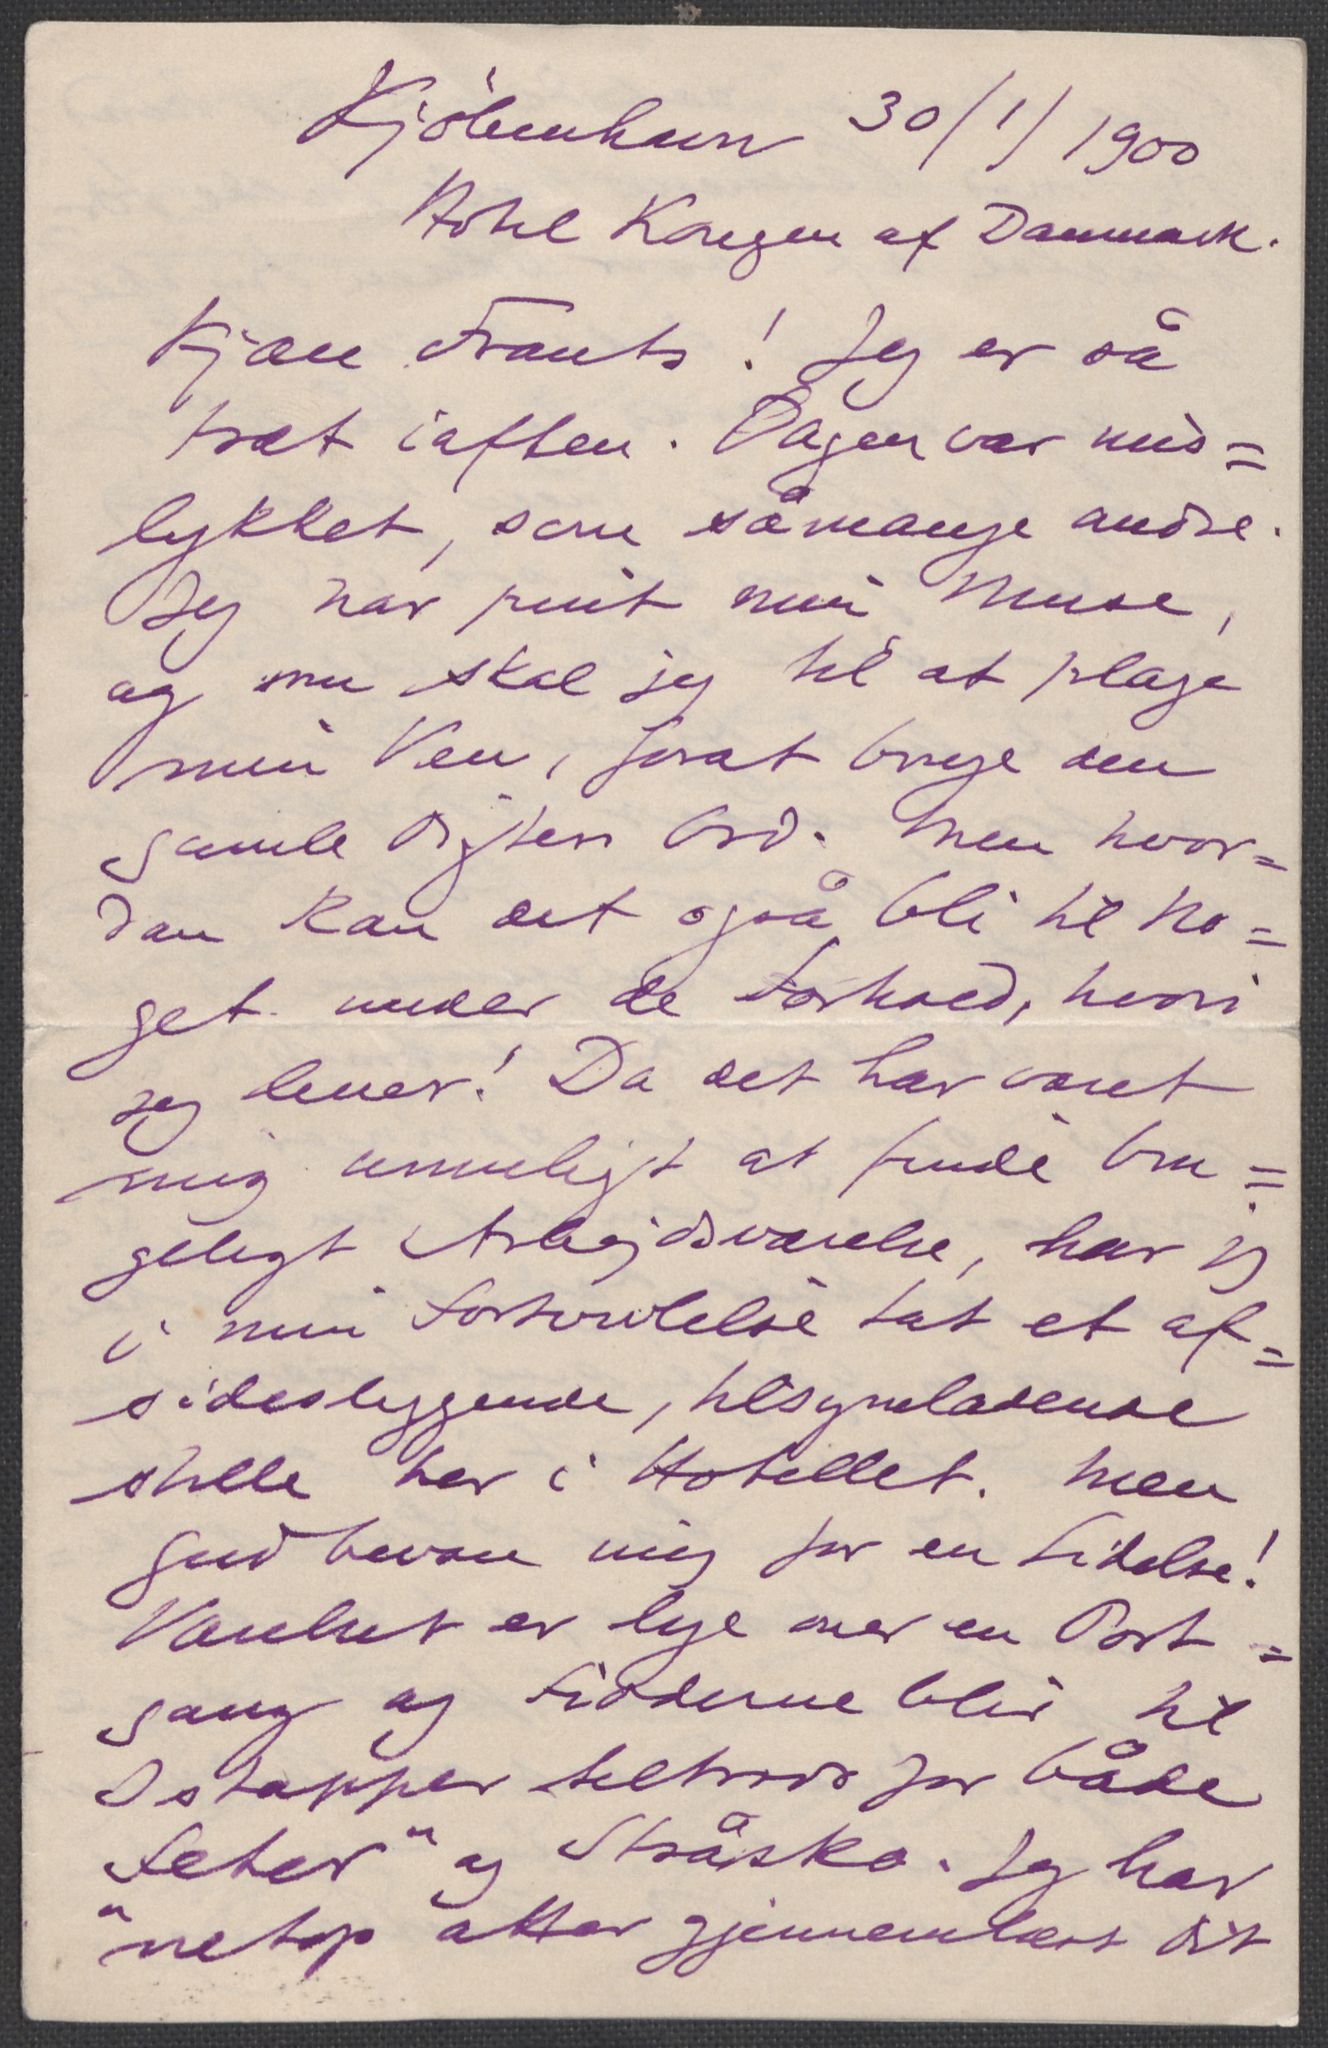 Kjöbenhavn 30/1/1900
Hotel Kongen af Danmark.
Kjære Frants! Jeg er så
træt iaften. Dagen var mis=
lykket, som såmange andre.
Jeg har pint min Muse,
og nu skal jeg til at plage
min Ven, forat bruge den
gamle Digters Ord. Men hvor=
dan kan det også bli til no=
get under de Forhold, hvori
jeg lever! Da det har været
mig umuligt at finde bru=
geligt Arbejdsværelse, har jeg
i min Fortvivlelse tat et af=
sidesliggende, tilsyneladende
stille her i Hotellet. Men
Gud bevare mig for en Lidelse!
Værelset er lige over en Port=
gang og Födderne blir til
Istapper tiltrods for både
"Feter" og Stråsko. Jeg har
netop atter gjennemlæst Dit